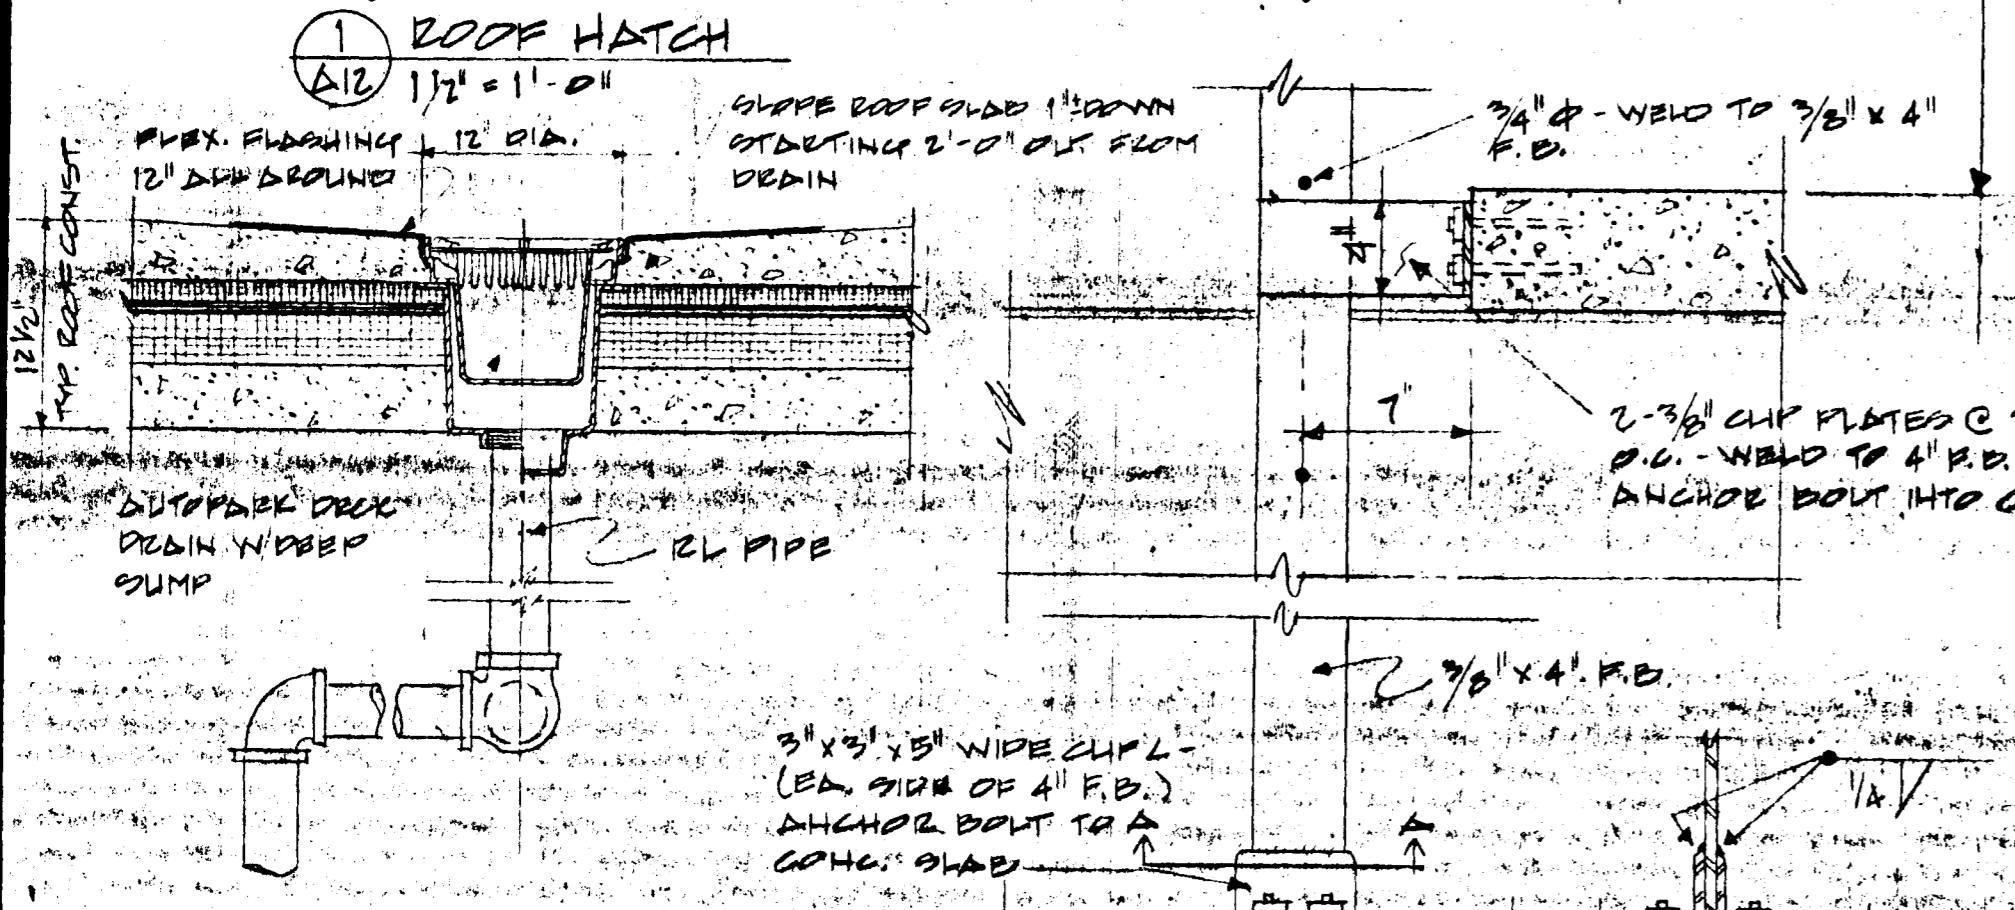 1
A12
ROOF HATCH
1 1/2" = 1'-0"
FLEX. FLASHING
12" ALL AROUND
12" DIA.
SLOPE ROOF SLAB 1"± DOWN
STARTING 2'-0" OUT FROM
DRAIN
12 1/2"
TYP. ROOF CONST.
AUTOPARK DECK
DRAIN W/DEEP
SUMP
RL PIPE
3/4" Φ - WELD TO 3/8" x 4"
F.B.
4"
7"
2-3/8" CLIP PLATES @
O.C. - WELD TO 4" F.B.
ANCHOR BOLT INTO
3/8" x 4" F.B.
3" x 3" x 5" WIDE CLIP L -
(EA. SIDE OF 4" F.B.)
ANCHOR BOLT TO
CONC. SLAB
A
A
1/4